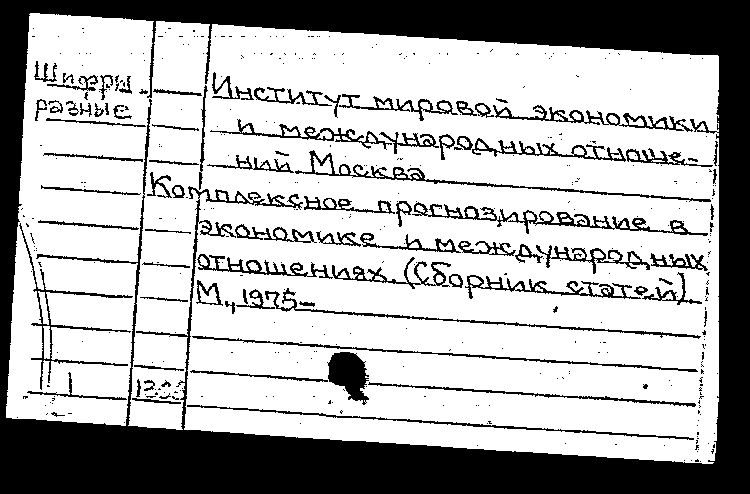 Шифры
разные
Институт мировой экономики
и международных отноше-
ний. Москва
Комплексное прогнозирование в
экономике и международных
отношениях. (Сборник статей).
М., 1975-
1